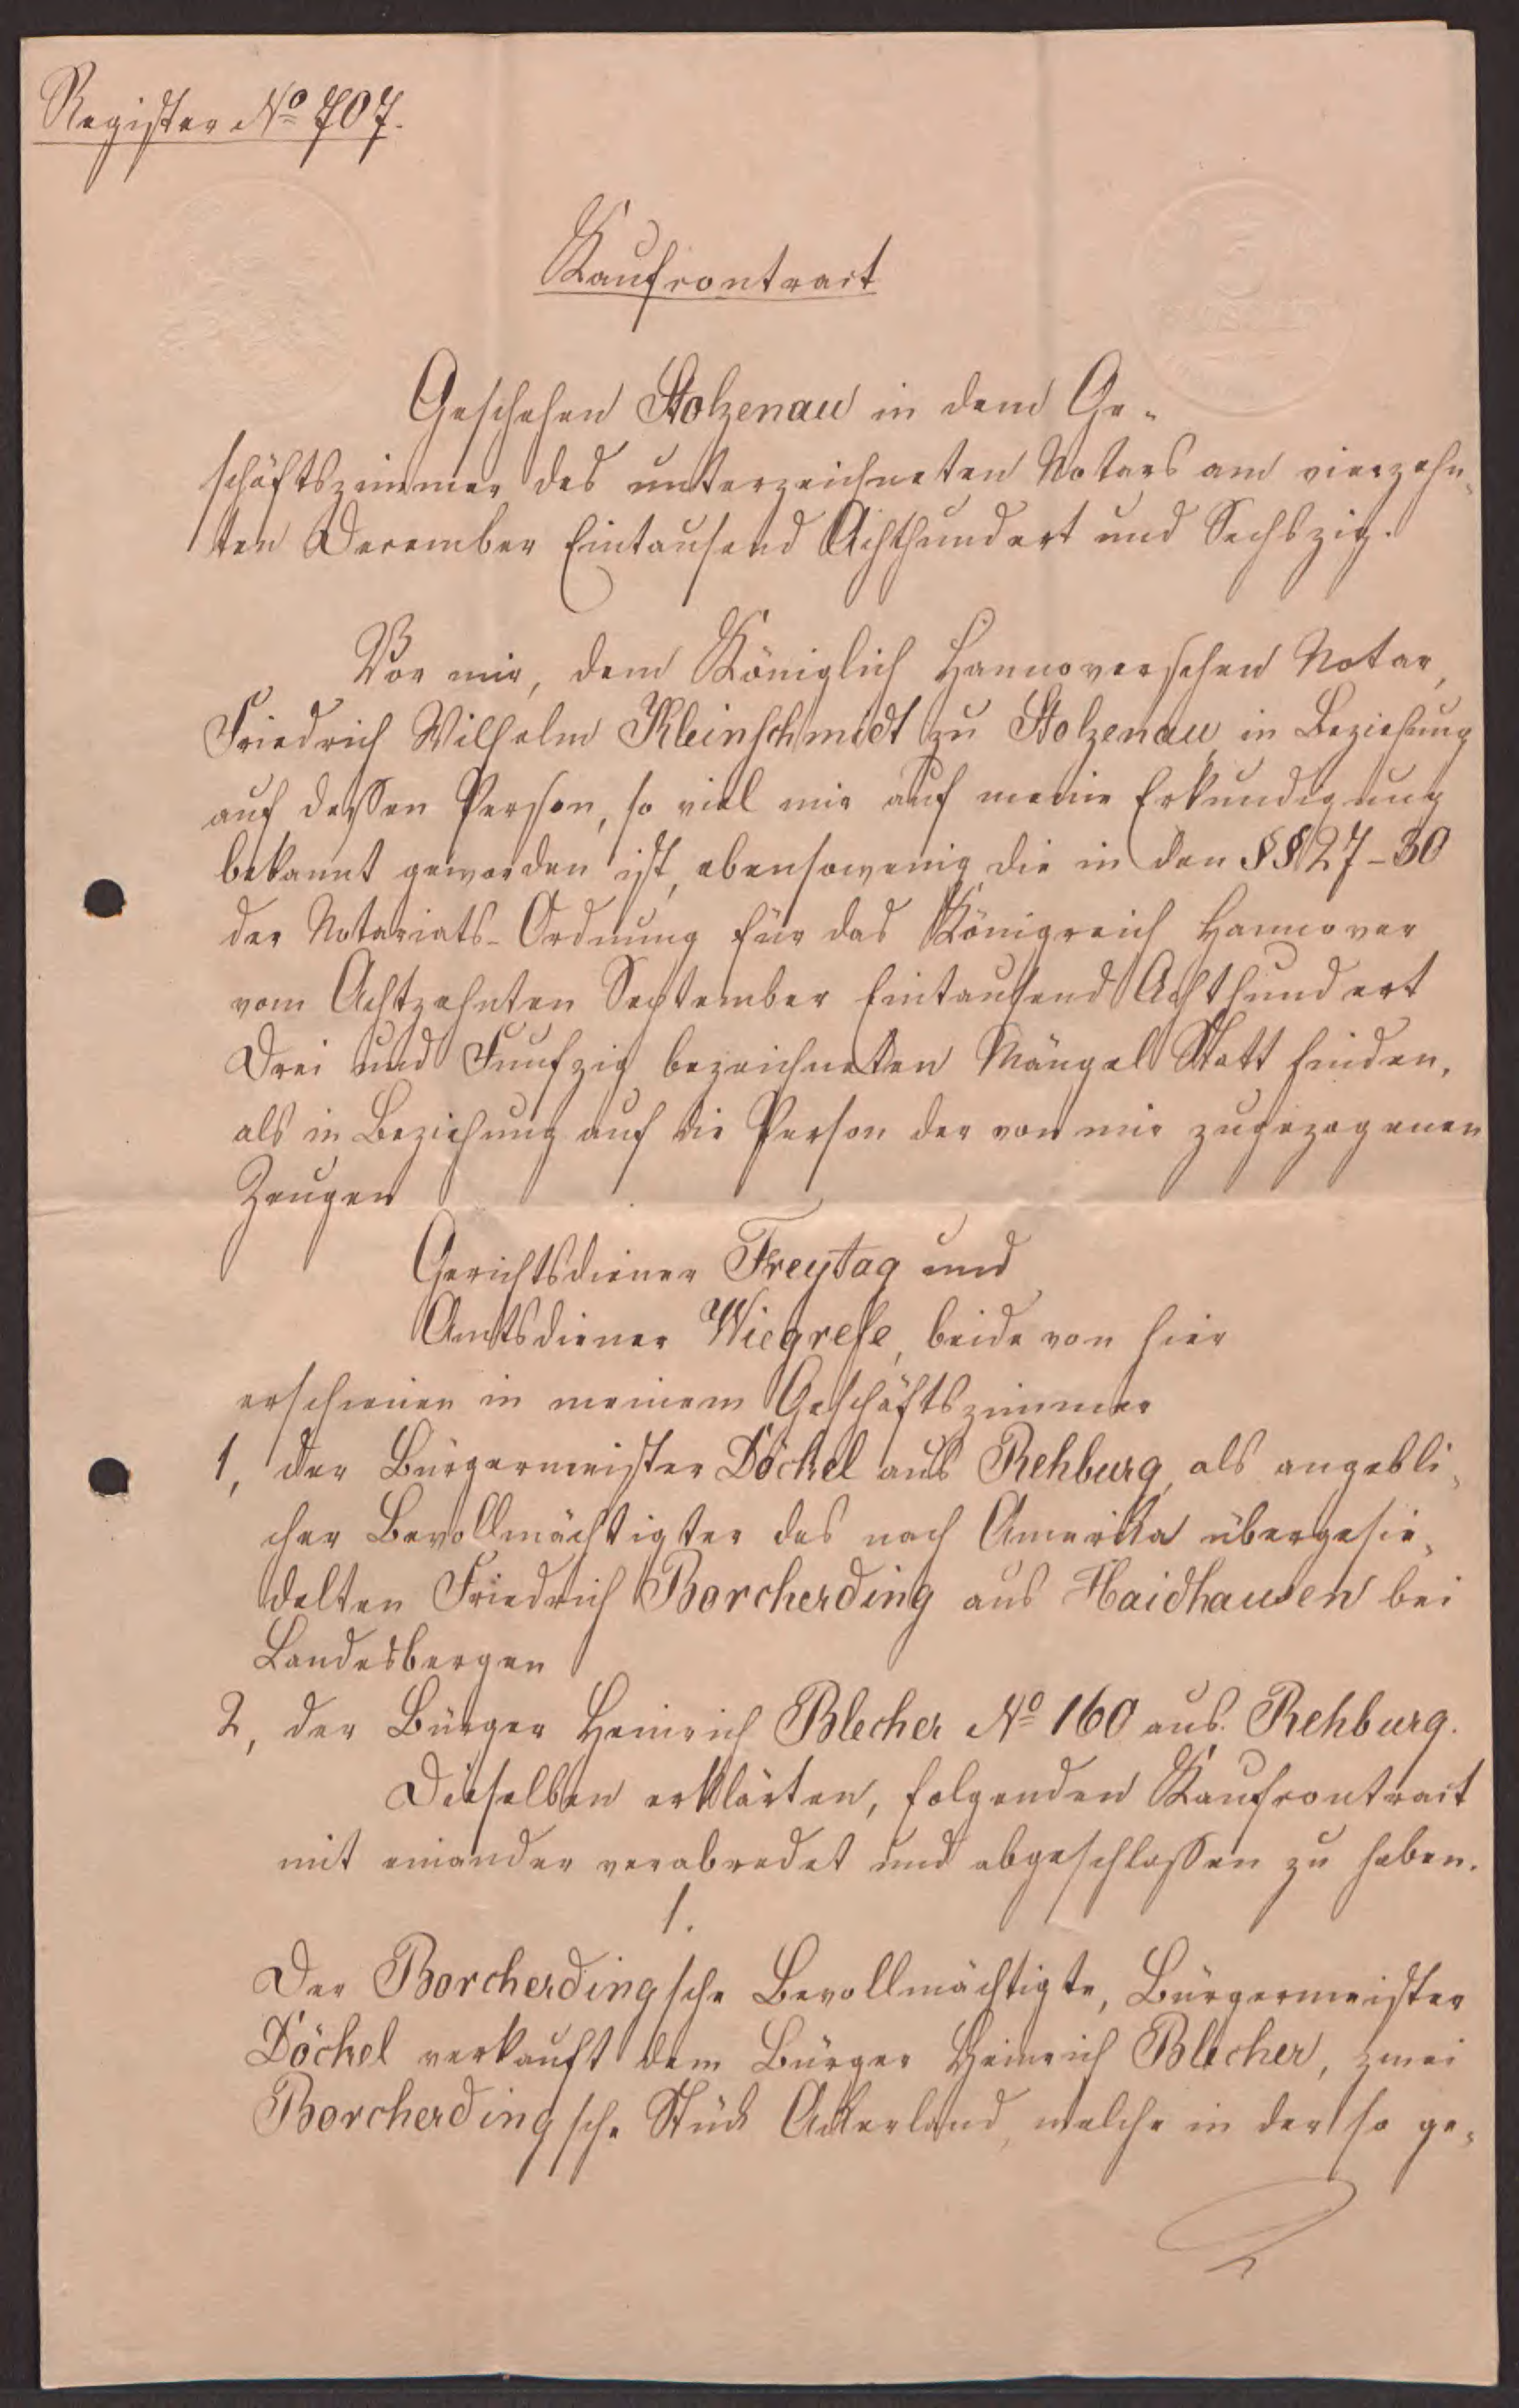 Register No 707.
Kaufcontract
Geschehen Stolzenau in dem Ge-
schäftszimmer des unterzeichneten Notars am vierzehn-
ten December Eintausend Achthundert und Sechszig.
Vor mir, dem Königlich Hannoverschen Notar,
Friedrich Wilhelm Kleinschmidt zu Stolzenau, in Beziehung
auf dessen Person, so viel mir auf meine Erkundigung
bekannt geworden ist, ebensowenig die in den §§ 27-30
der Notariats-Ordnung für das Königreich Hannover
vom Achtzehnten September Eintausend Achthundert
Drei und Funfzig bezeichneten Mängel Statt finden,
als in Beziehung auf die Person der von mir zugezogenen
Zeugen
Gerichtsdiener Freytag und
Amtsdiener Wiegrefe, beide von hier
erschienen in meinem Geschäftszimmer
1, der Bürgermeister Döckel aus Rehburg, als angebli-
cher Bevollmächtigter des nach Amerika übergesie-
delten Friedrich Borcherding aus Haidhausen bei
Landesbergen
2, der Bürger Heinrich Blecher No 160 aus Rehburg.
Dieselben erklärten, folgenden Kaufcontract
mit einander verabredet und abgeschlossen zu haben.
1.
Der Borcherdingsche Bevollmächtigte, Bürgermeister
Döckel verkauft dem Bürger Heinrich Blecher, zwei
Borcherdingsche Stück Ackerland, welche in der so ge-